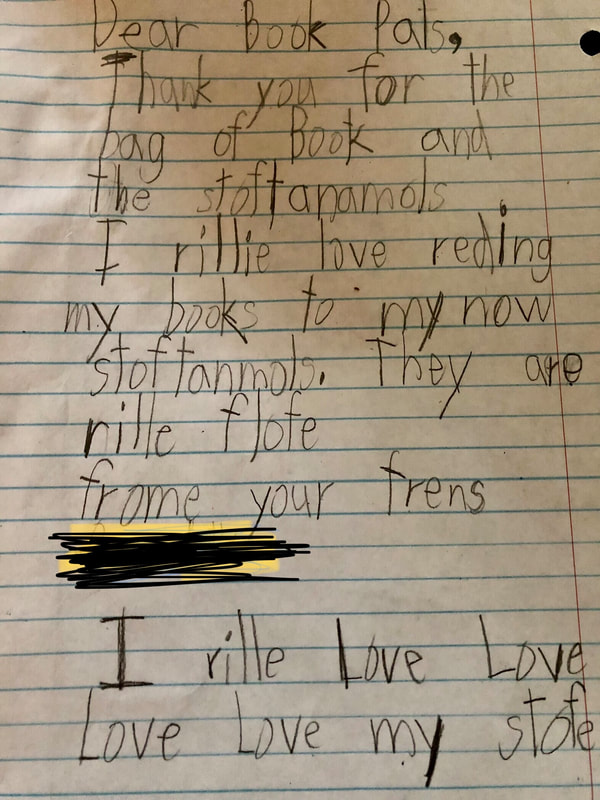 Dear Book Pals,
Thank you for the
bag of Book and
the stoftanamols
I rillie love reding
my books to my now
stoftanmols. They are
rille flofe
frome your frens
I rille Love Love
Love Love my stofe